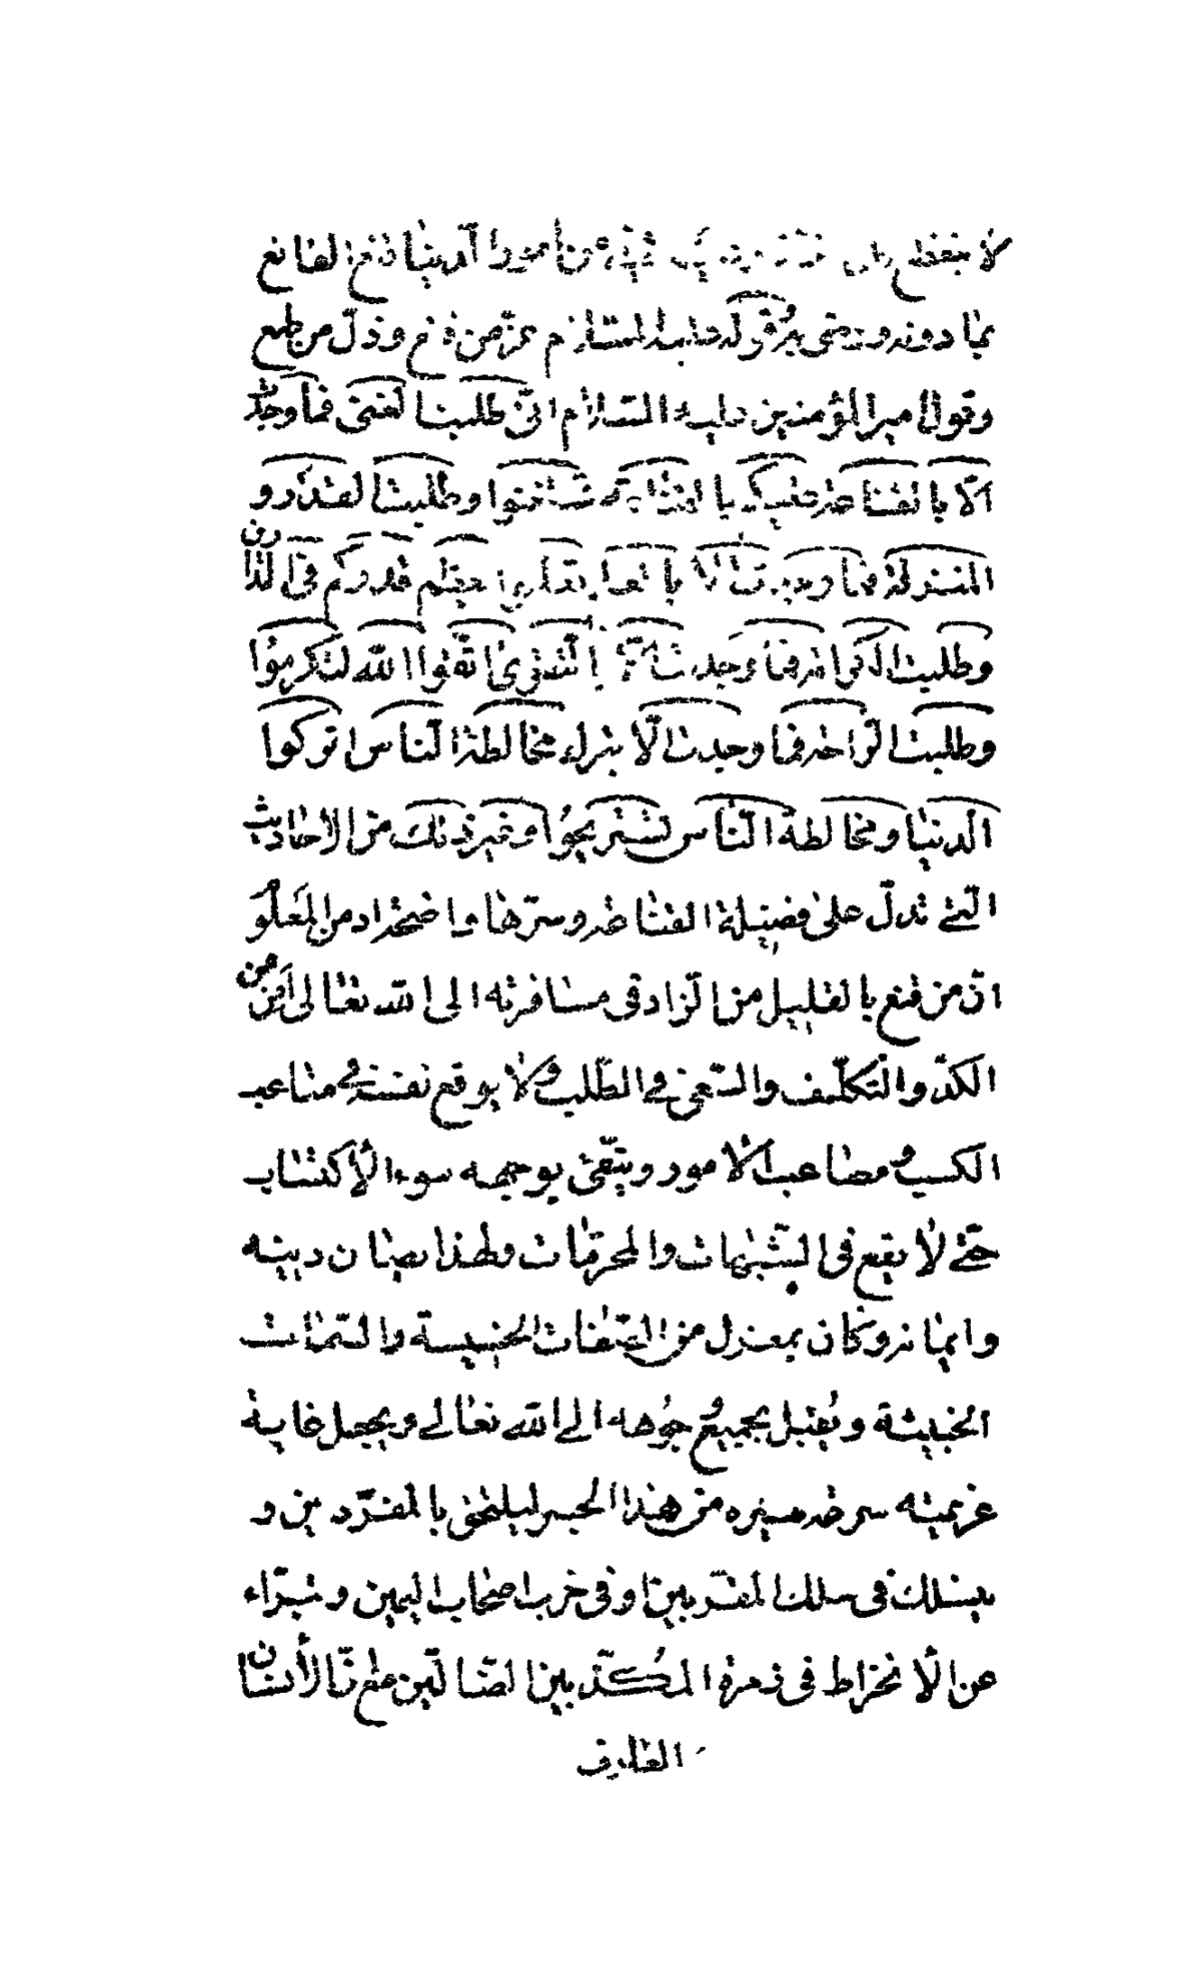 لا ينقطع من امور الدنيا قنع القانع
بما دونه ورضى به قوله عليه السلام عزّ من قنع وذلّ من طمع
وقول امير المؤمنين عليه السلام انّى طلبنا الغنى فما وجدنا
الّا بالقناعة عليكم بالقناعة تستغنوا وطلبت القدر و
المنزلة فما وجدت الّا بالعلم تعلموا يعظم قدركم فى الدارين
وطلبت الكرامة فما وجدت الّا بالتقوى اتّقوا اللّه لتكرموا
وطلبت الرّاحة فما وجدت الّا بترك مخالطة النّاس اتركوا
الدنيا ومخالطة النّاس تستريحوا وغير ذلك من الاحاديث
الّتى تدلّ على فضيلة القناعة وسرّها واضحة اذ من المعلوم
انّ من قنع بالقليل من الزاد فى مسافرته الى اللّه تعالى أمن من
الكدّ والتّكلّيف والسّعى فى الطّلب ولا يوقع نفسه فى متاعب
الكسب ومصاعب الأمور ويتّقى بوجهه سوء الأكتساب
حتّى لا يقع فى الشّبهات والمحرمات ولهذا يصان دينه
وايمانه وكان بمعزل من الصّفات الخسيسة والسّمات
الخبيثة ويقبل بجميع وجوهه الى اللّه تعالى ويجعل غاية
عزيمته سرعة سيره من هذا الجسر ليلتحق بالمفرّدين و
ينسلك فى سلك المقرّبين وفى حزب اصحاب اليمين ويتبرّاء
عن الّانخراط فى زمرة المكذّبين الضّالّين مع انّ الأنسان
العارف